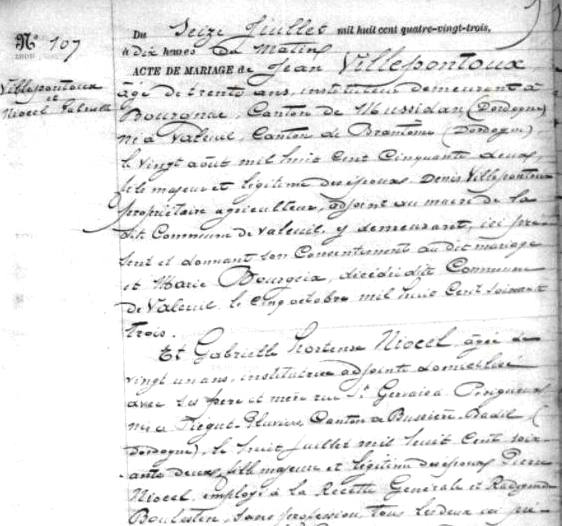 N° 107
Villepontoux
et
Niocel Gabrielle
Du Seize Juillet mil huit cent quatre-vingt-trois,
à dix heures du Matin
ACTE DE MARIAGE de Jean Villepontoux
âgé de trente ans, instituteur demeurant à
Bourgnac, Canton de Mussidan (Dordogne)
né à Valeuil, Canton de Brantôme (Dordogne)
le vingt août mil huit Cent Cinquante deux,
fils majeur et légitime des époux Denis Villepontoux
propriétaire agriculteur, adjoint au maire de la
dite Commune de Valeuil, y demeurant, ici pré
sent et donnant son Consentement au dit mariage
et Marie Bourgeix, décédée dite Commune
de Valeuil, le Cinq octobre mil huit Cent soixante
trois.
Et Gabrielle Hortense Niocel, âgée de
vingt un ans, institutrice adjointe domiciliée
avec ses père et mère rue St Gervaise Périgueux
née à Piégut-Pluviers, Canton de Bussière-Badil (
Dordogne), le huit Juillet mil huit Cent soix-
ante deux, fille majeure et légitime des époux Pierre
Niocel, employé à la Recette Générale et Radegonde
Boulesten, sans profession, tous les deux ici pré-